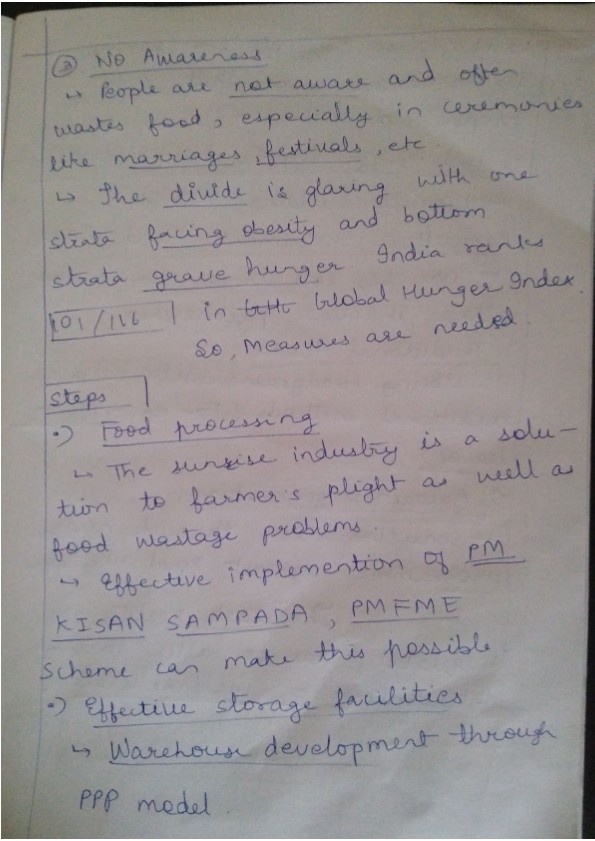 ③ No Awareness
↳ People are not aware and often
wastes food, especially in ceremonies
like marriages, festivals, etc
↳ The divide is glaring with one
strata facing obesity and bottom
strata grave hunger. India ranks
101/116 in GHI Global Hunger Index.
So, Measures are needed.
Steps
•) Food processing
↳ The sunrise industry is a solu-
tion to farmer's plight as well as
food wastage problems.
↳ Effective implemention of PM
KISAN SAMPADA, PMFME
scheme can make this possible.
•) Effective storage facilities
↳ Warehouse development through
PPP model.